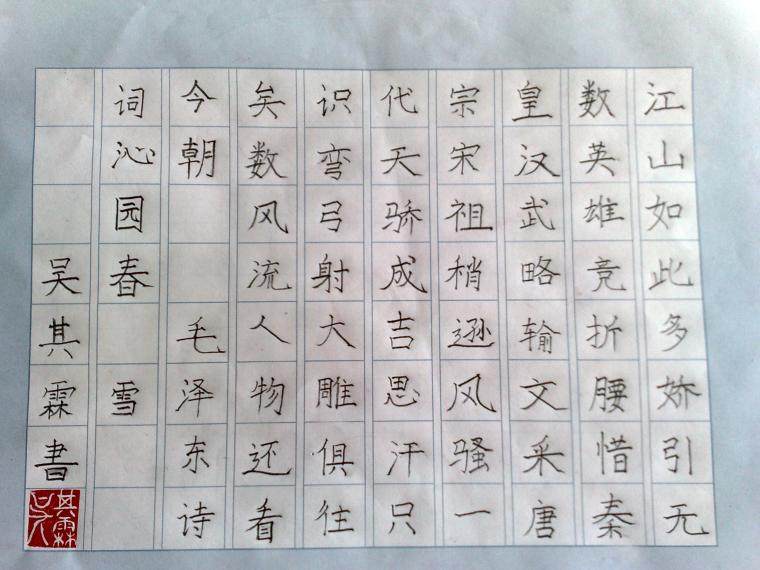 江山如此多娇引无
数英雄竞折腰惜秦
皇汉武略输文采唐
宗宋祖稍逊风骚一
代天骄成吉思汗只
识弯弓射大雕俱往
矣数风流人物还看
今朝 毛泽东诗
词沁园春 雪
吴其霖書
其霖